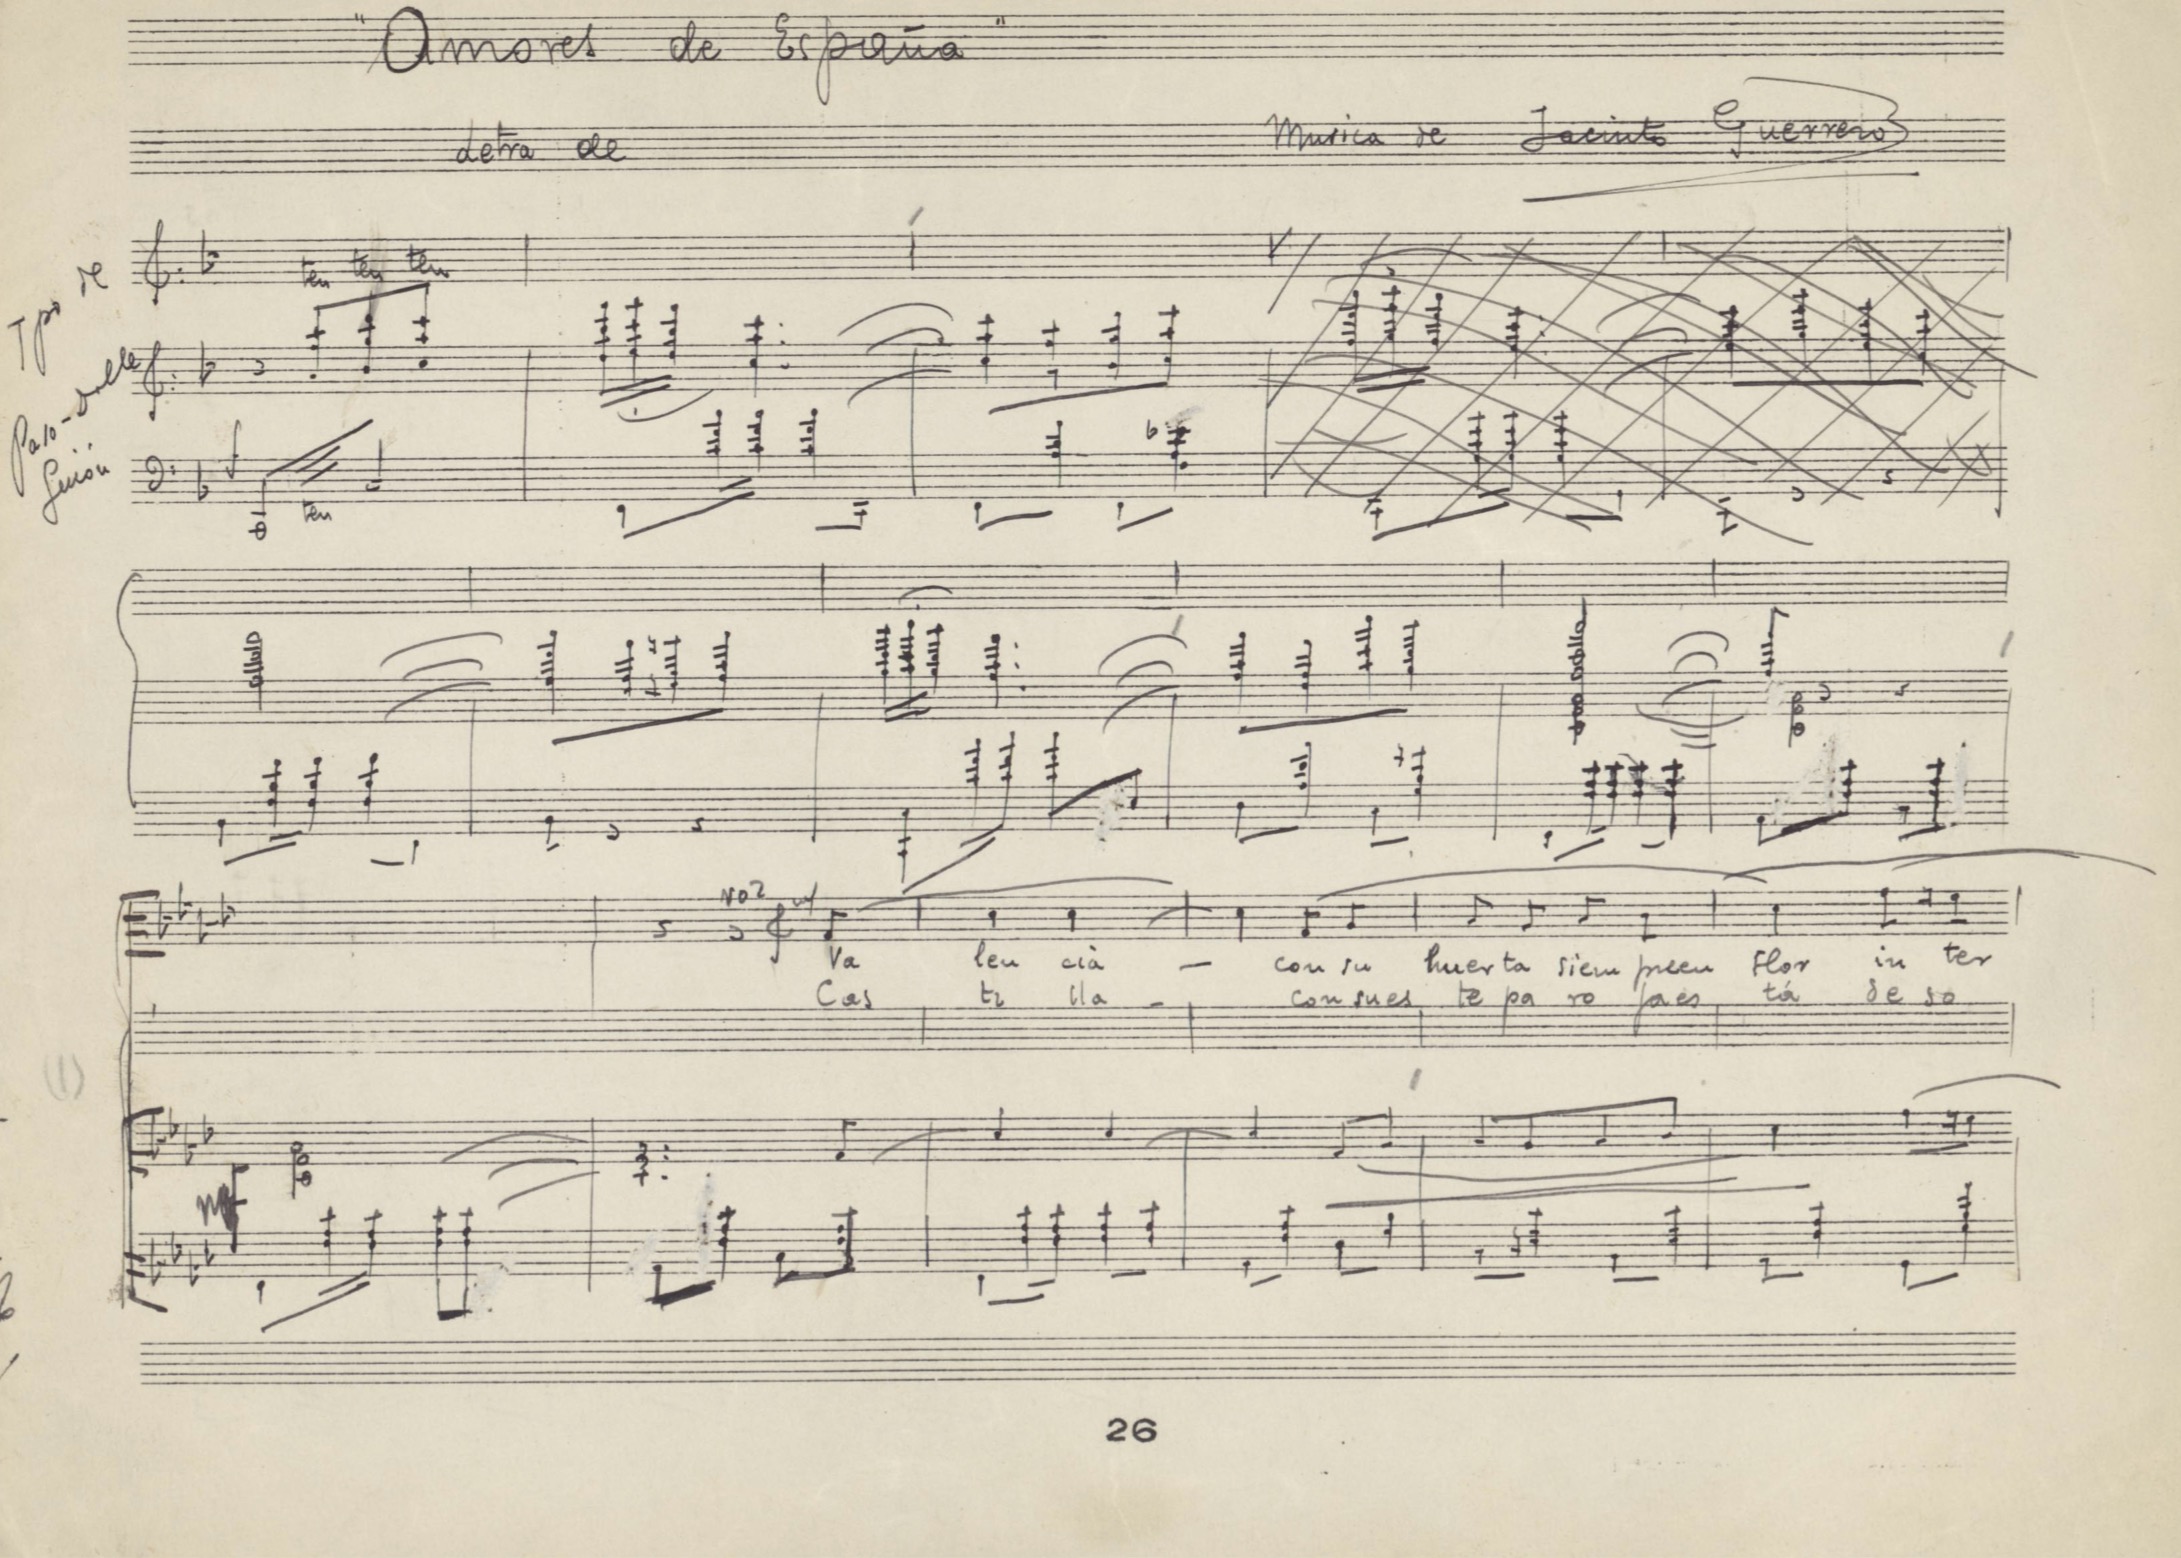 "Amores de España"
Letra de
Musica de Jacinto Guerrero
Tpo de
Paso-doble
Guión
ten ten ten
ten
voz
Va len cia — con su huer ta siem preen flor in ter
Cas ti lla - con sues te pa ro ja es tá de so
(1)
mf
26